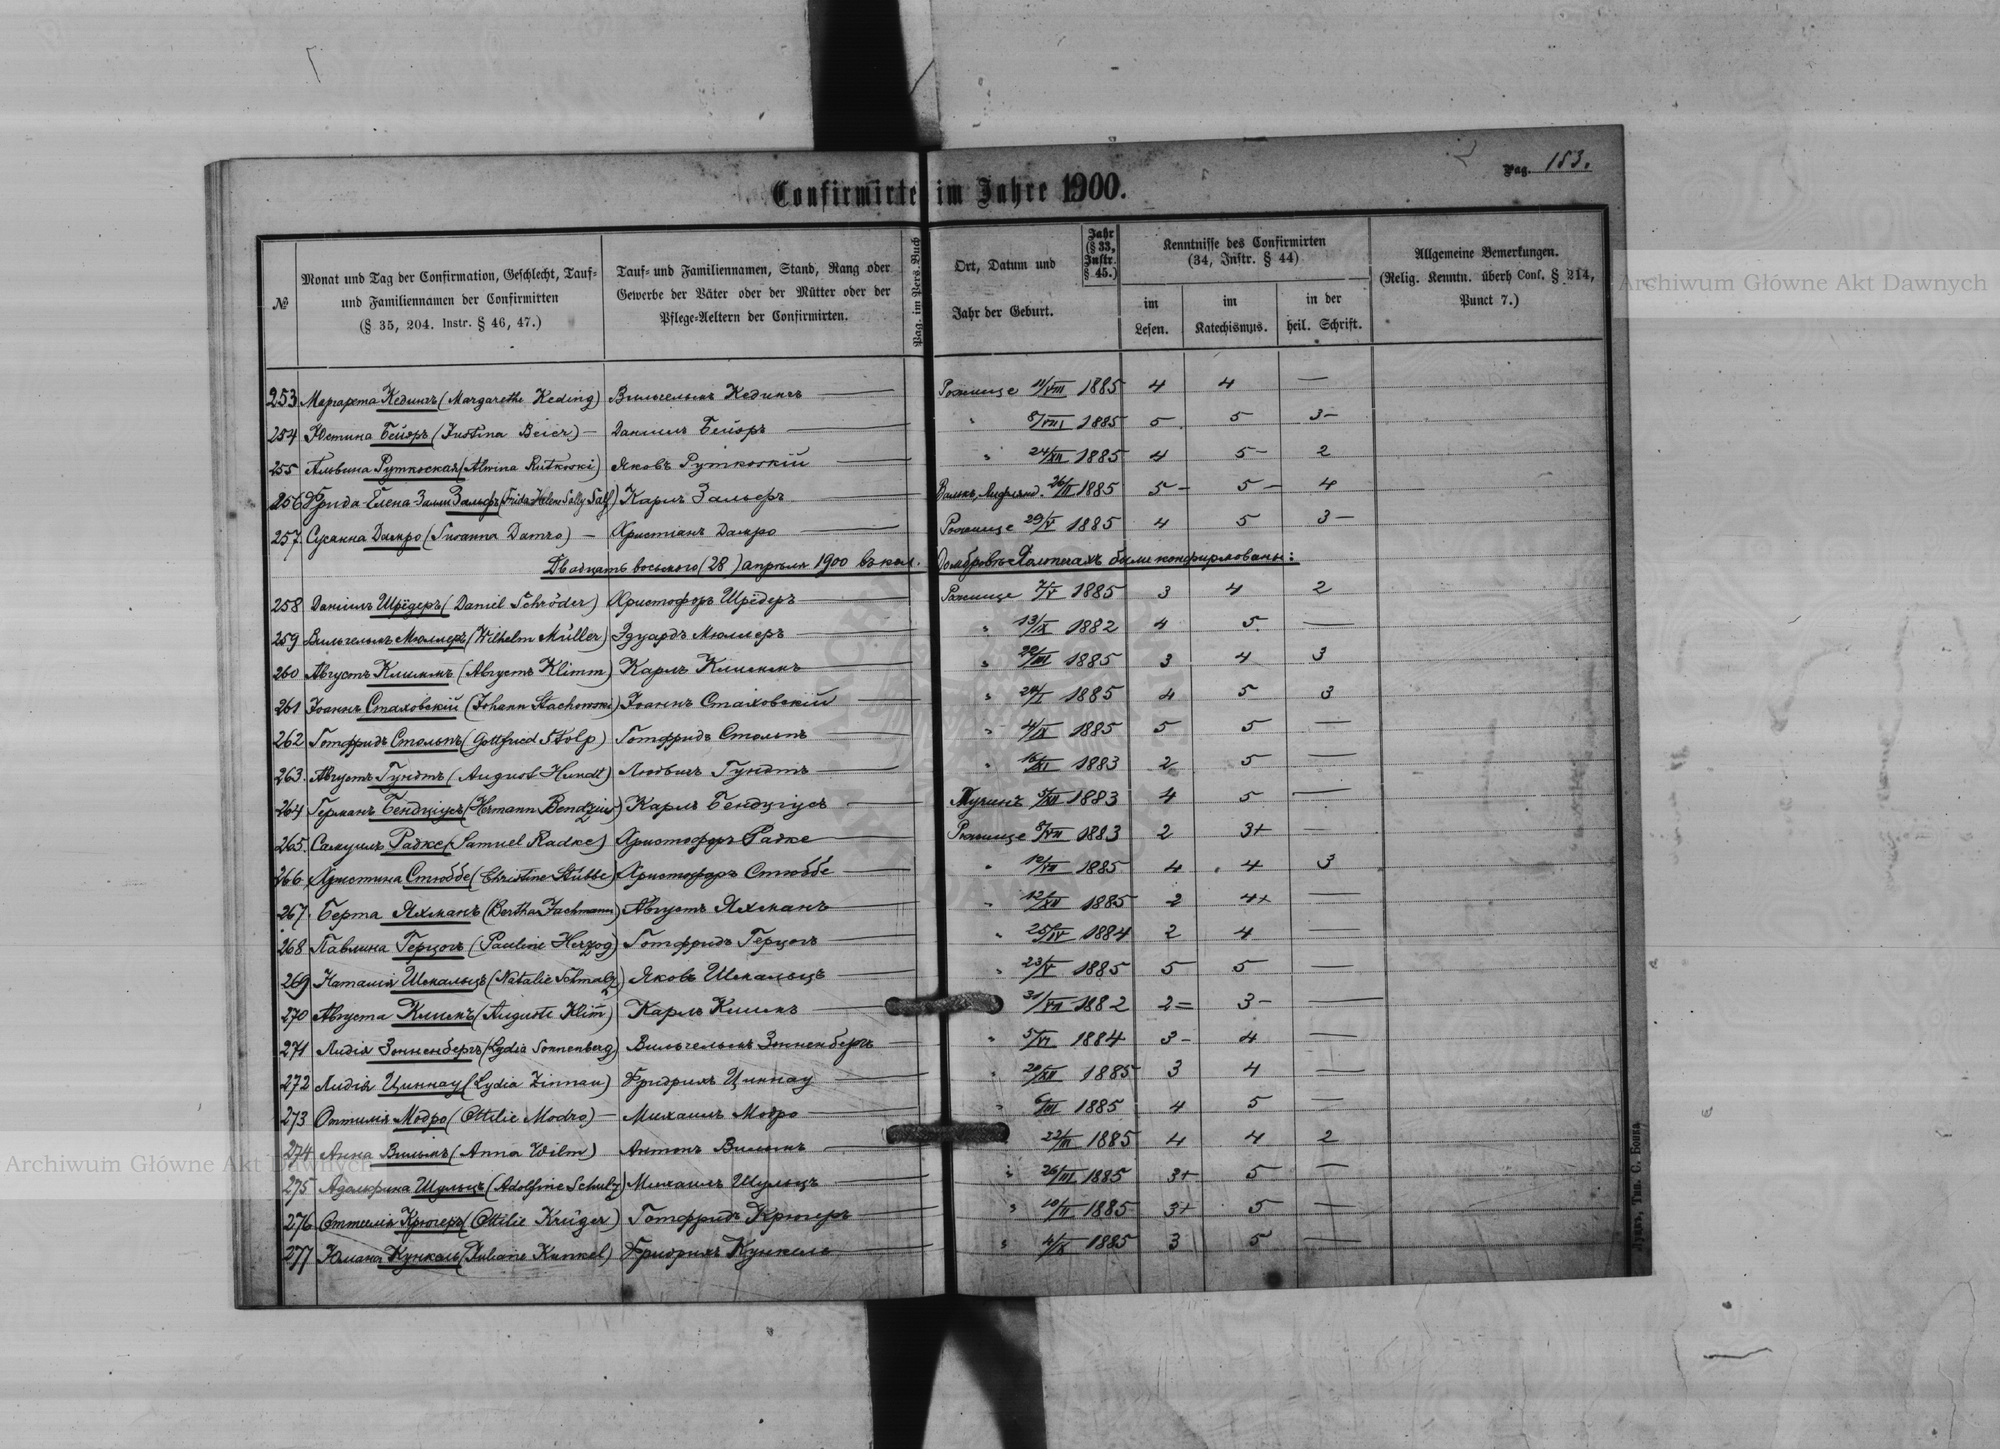 Pag. 183.
Confirmirte im Jahre 1900.
№
Monat und Tag der Confirmation, Geschlecht, Tauf-
und Familiennamen der Confirmirten
(§ 35, 204. Instr. § 46, 47.)
Tauf- und Familiennamen, Stand, Rang oder
Gewerbe der Väter oder der Mütter oder der
Pflege-Aeltern der Confirmirten.
Pag. im Pers. Buch
Ort, Datum und
Jahr der Geburt.
Jahr
(§ 33,
Instr.
§ 45.)
Kenntnisse des Confirmirten
(34, Instr. § 44)
im
Lesen.
im
Katechismus.
in der
heil. Schrift.
Allgemeine Bemerkungen.
(Relig. Kenntn. überh Conf. § 214,
Punct 7.)
253 Маргарета Кедингъ (Margarethe Keding) Вильгельмъ Кедингъ — Рожище 11/VIII 1885 4 4 —
254 Юстина Бейеръ (Justina Beier) — Даніилъ Бейеръ — " 8/VIII 1885 5 5 3-
255 Альвина Рутковская (Alwina Rutkowski) Яковъ Рутковскій — " 24/XII 1885 4 5- 2
256 Фрида Елена Залли Зальфъ (Frida Helene Sally Salf) Карлъ — Валкъ, Лифлянд. 26/II 1885 5- 5- 4
257. Сусанна Дамро (Susanna Damro) — Христіанъ Дамро — Рожище 29/V 1885 4 5 3-
Двадцать восьмого (28) апрѣля 1900 въ кол. были конфирмованы:
258 Даніилъ Шрёдеръ (Daniel Schröder) Христофоръ Шрёдеръ — Рожище 7/V 1885 3 4 2
259 Вильгельмъ Мюллеръ (Wilhelm Müller) Эдуардъ Мюллеръ — " 13/IX 1882 4 5. —
260 Августъ Климмъ (Августъ Klimm) Карлъ Климмъ — " 1885 3 4 3
261 Іоаннъ Стаховскій (Johann Stachowski) Іоаннъ Стаховскій — " 24/I 1885 4 5 3
262 Готфридъ Стольпъ (Gottfried Stolp) Готфридъ Стольпъ — " 4/IX 1885 5 5 —
263. Августъ Гундтъ (August Hundt) Людвигъ Гундтъ — " 16/XI 1883 2 5 —
264 Германъ Бендціусъ (Hermann Bendzius) Карлъ Бендціусъ — 1883 4 5 —
265. Самуилъ Радке (Samuel Radke) Христофоръ Радке — Рожище 1883 2 3+ —
266 Христина Стюббе (Christine Stübbe) Христофоръ Стюббе — " 1885 4 4 3
267. Берта Яхманъ (Bertha Jachmann) Августъ Яхманъ — " 12/XII 1885 2 4+ —
268 Павлина Герцогъ (Pauline Herzog) Готфридъ Герцогъ — " 25/IV 1884 2 4 —
269 Наталія Шмальцъ (Natalie Schmalz) Яковъ Шмальцъ — " 23/V 1885 5 5 —
270 Августа Климъ (Auguste Klim̄) Карлъ Климъ — " 31/VII 1882 2= 3- —
271 Лидія Зонненбергъ (Lydia Sonnenberg) Вильгельмъ Зонненбергъ — " 5/VI 1884 3- 4 —
272 Лидія Циннау (Lydia Zinnau) Фридрихъ Циннау — " 1885 3 4 —
273 Оттилія Модро (Ottilie Modro) — Михаилъ Модро — " 6/III 1885 4 5 —
274 Анна Вильмъ (Anna Wilm) Антонъ Вильмъ — " 22/III 1885 4 4 2
275 Адольфина Шульцъ (Adolfine Schulz) Михаилъ Шульцъ — " 26/III 1885 3+ 5 —
276 Оттилія Крюгеръ (Ottilie Krüger) Готфридъ Крюгеръ — " 10/II 1885 3+ 5 —
277 Юліана Кункель (Juliane Kunkel) Фридрихъ Кункель — " 4/IX 1885 3 5 —
Луцкъ, Тип. С. Бонка.
Archiwum Główne Akt Dawnych
Archiwum Główne Akt Dawnych